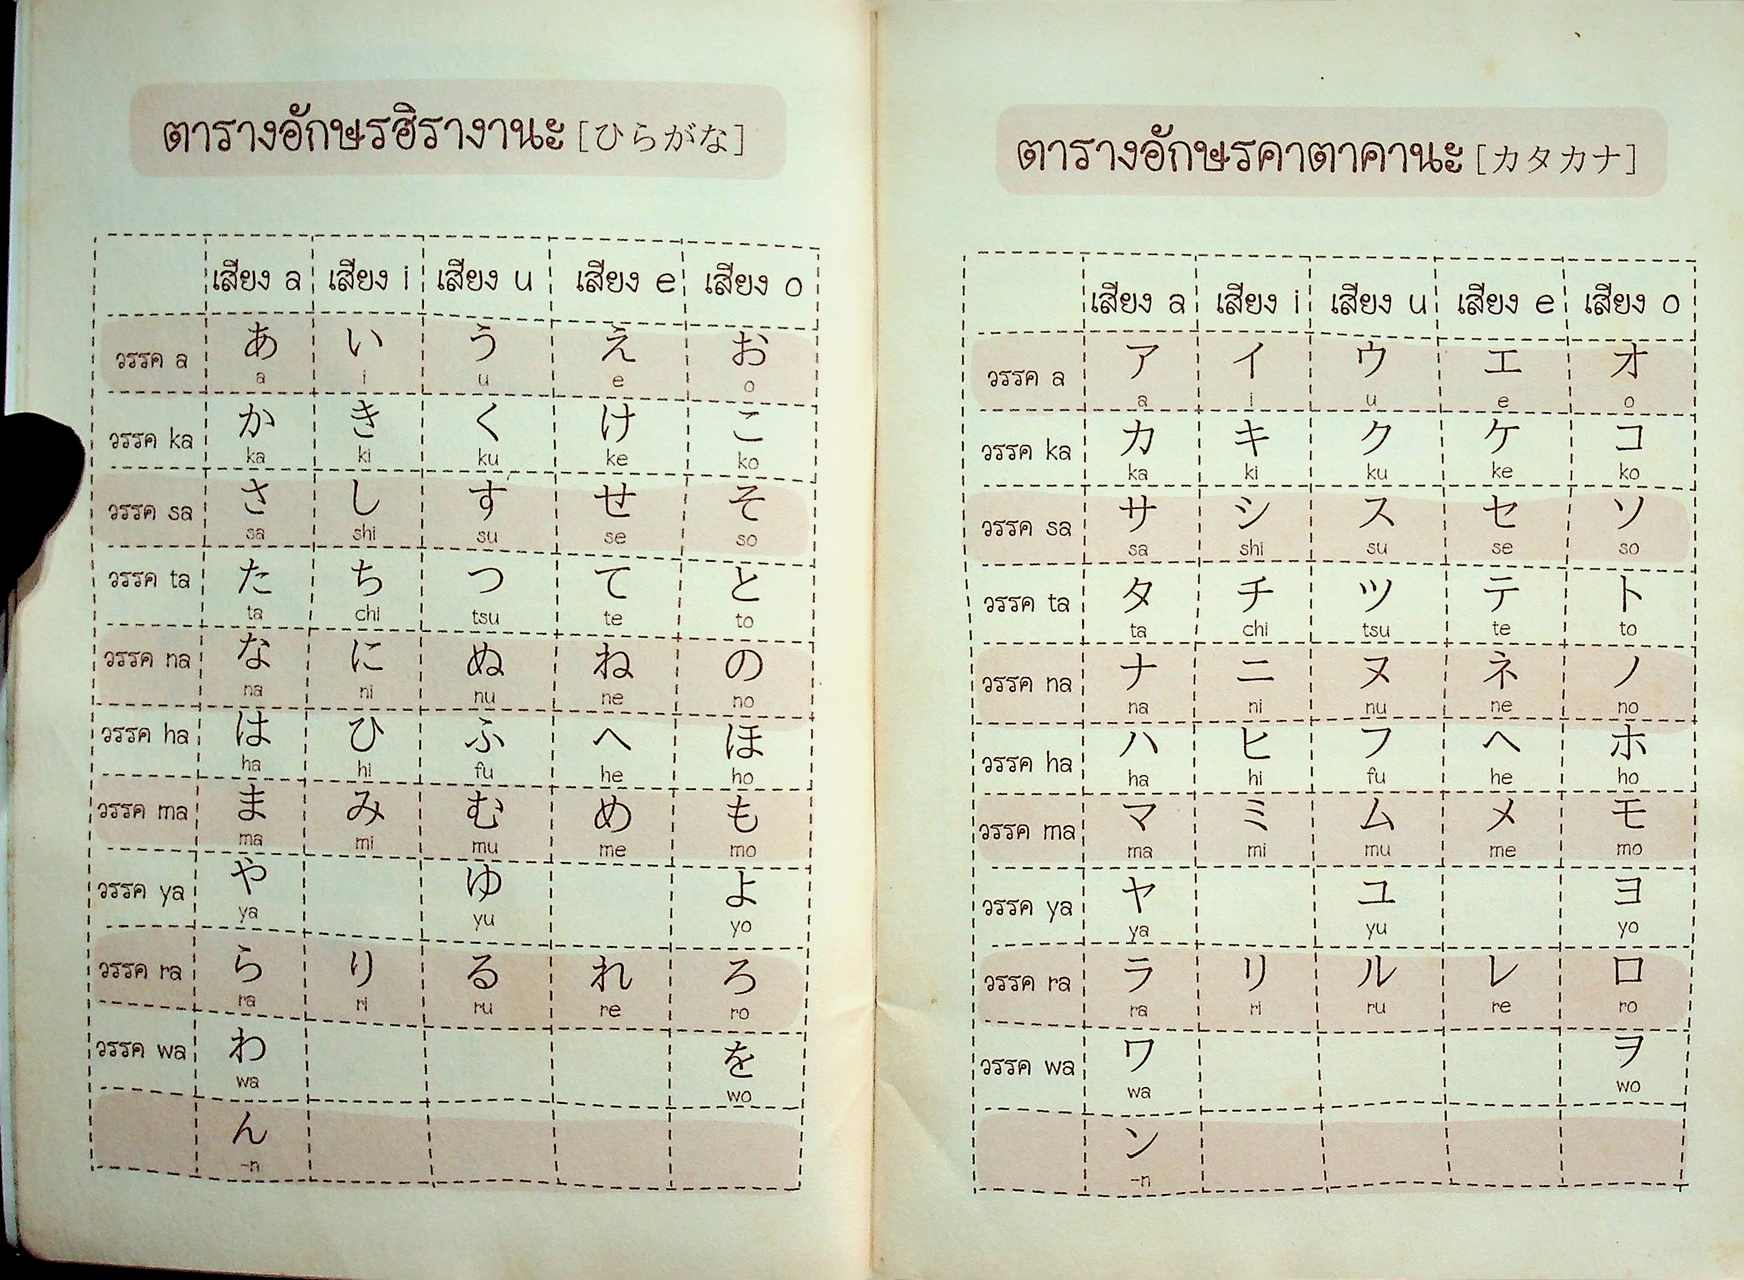 ตารางอักษรฮิรางานะ [ひらがな]
เสียง a เสียง i เสียง u เสียง e เสียง o
วรรค a あ い う え お
a i u e o
วรรค ka か き く け こ
ka ki ku ke ko
วรรค sa さ し す せ そ
sa shi su se so
วรรค ta た ち つ て と
ta chi tsu te to
วรรค na な に ぬ ね の
na ni nu ne no
วรรค ha は ひ ふ へ ほ
ha hi fu he ho
วรรค ma ま み む め も
ma mi mu me mo
วรรค ya や ゆ よ
ya yu yo
วรรค ra ら り る れ ろ
ra ri ru re ro
วรรค wa わ を
wa wo
ん
-n
ตารางอักษรคาตาคานะ [カタカナ]
เสียง a เสียง i เสียง u เสียง e เสียง o
วรรค a ア イ ウ エ オ
a i u e o
วรรค ka カ キ ク ケ コ
ka ki ku ke ko
วรรค sa サ シ ス セ ソ
sa shi su se so
วรรค ta タ チ ツ テ ト
ta chi tsu te to
วรรค na ナ ニ ヌ ネ ノ
na ni nu ne no
วรรค ha ハ ヒ フ ヘ ホ
ha hi fu he ho
วรรค ma マ ミ ム メ モ
ma mi mu me mo
วรรค ya ヤ ユ ヨ
ya yu yo
วรรค ra ラ リ ル レ ロ
ra ri ru re ro
วรรค wa ワ ヲ
wa wo
ン
-n